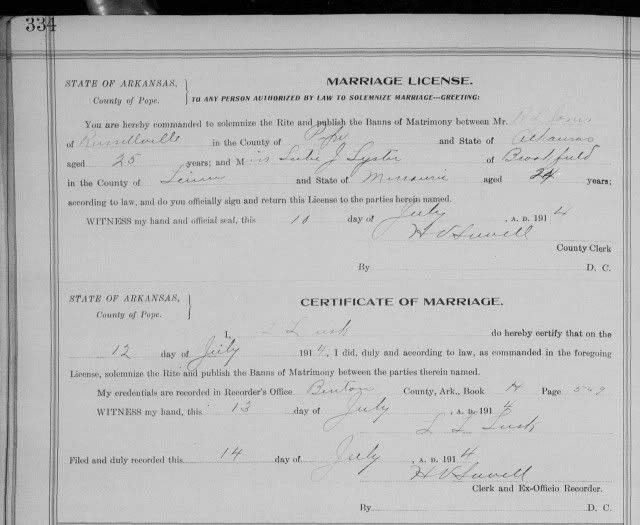 334
MARRIAGE LICENSE.
STATE OF ARKANSAS,
County of Pope.
TO ANY PERSON AUTHORIZED BY LAW TO SOLEMNIZE MARRIAGE—GREETING:
You are hereby commanded to solemnize the Rite and publish the Banns of Matrimony between Mr. R L Jones
of Russellville in the County of Pope and State of Arkansas
aged 25 years; and Miss J. Lyster of
in the County of and State of Missouri aged 24 years;
according to law, and do you officially sign and return this License to the parties herein named.
WITNESS my hand and official seal, this 10 day of July, A. D. 1914
H V
County Clerk
By D. C.
STATE OF ARKANSAS,
County of Pope.
CERTIFICATE OF MARRIAGE.
I, L L Lusk do hereby certify that on the
12 day of July 1914, I did, duly and according to law, as commanded in the foregoing
License, solemnize the Rite and publish the Banns of Matrimony between the parties therein named.
My credentials are recorded in Recorder's Office Benton County, Ark., Book H Page 549
WITNESS my hand, this 13 day of July, A. D. 1914
L L Lusk
Filed and duly recorded this 14 day of July, A. D. 1914
H V
Clerk and Ex-Officio Recorder.
By D. C.